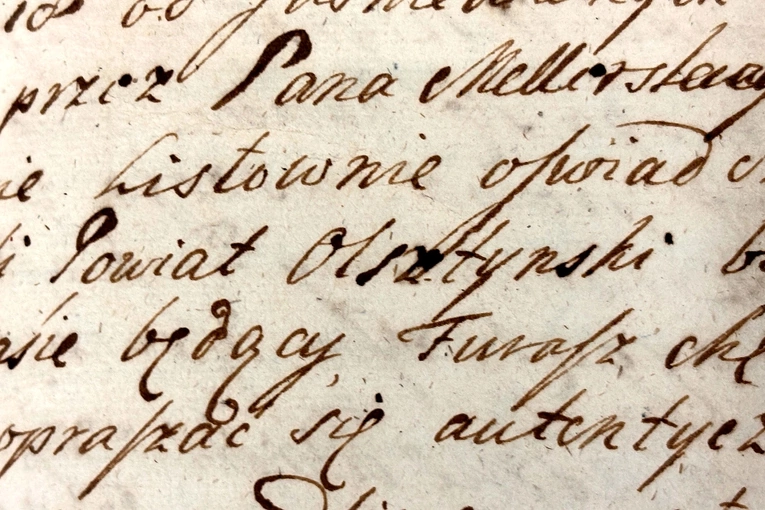 od
przez Pana Mellersk
ie Listownie opowiad
i Powiat Olsztynski b
asie będący Furasz chę
opraszać się autentycz